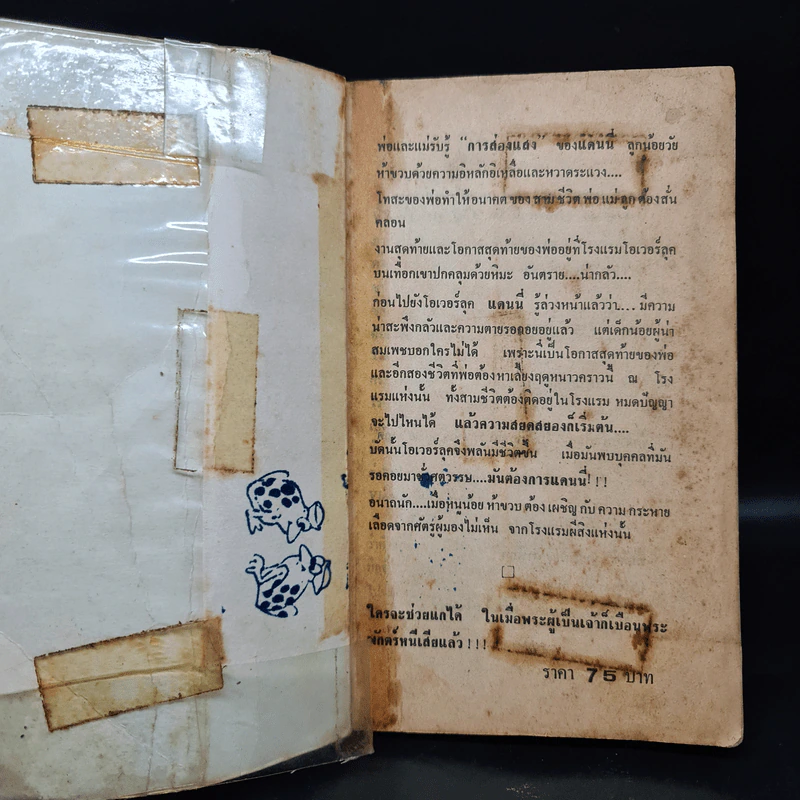 พ่อและแม่รับรู้ "การส่องแสง" ของแดนนี่ ลูกน้อยวัย
ห้าขวบด้วยความอิหลักอิเหลื่อและหวาดระแวง....
โทสะของพ่อทำให้อนาคตของสามชีวิต พ่อ แม่ ลูก ต้องสั่น
คลอน
งานสุดท้ายและโอกาสสุดท้ายของพ่ออยู่ที่โรงแรมโอเวอร์ลุค
บนเทือกเขาปกคลุมด้วยหิมะ อันตราย....น่ากลัว....
ก่อนไปยังโอเวอร์ลุค แดนนี่ รู้ล่วงหน้าแล้วว่า... มีความ
น่าสะพึงกลัวและความตายรอคอยอยู่แล้ว แต่เด็กน้อยผู้น่า
สมเพชบอกใครไม่ได้ เพราะนี่เป็นโอกาสสุดท้ายของพ่อ
และอีกสองชีวิตที่พ่อต้องหาเลี้ยงฤดูหนาวคราวนี้ ณ โรง
แรมแห่งนั้น ทั้งสามชีวิตต้องติดอยู่ในโรงแรม หมดปัญญา
จะไปไหนได้ แล้วความสยดสยองก็เริ่มต้น....
บัดนั้นโอเวอร์ลุคจึงพลันมีชีวิตขึ้น เมื่อมันพบบุคคลที่มัน
รอคอยมาชั่วศตวรรษ....มันต้องการแดนนี่!!!
อนาถนัก....เมื่อหนูน้อย ห้าขวบ ต้อง เผชิญ กับ ความ กระหาย
เลือดจากศัตรูผู้มองไม่เห็น จากโรงแรมผีสิงแห่งนั้น
ใครจะช่วยแกได้ ในเมื่อพระผู้เป็นเจ้าก็เบือนพระ
พักตร์หนีเสียแล้ว!!!
ราคา 75 บาท